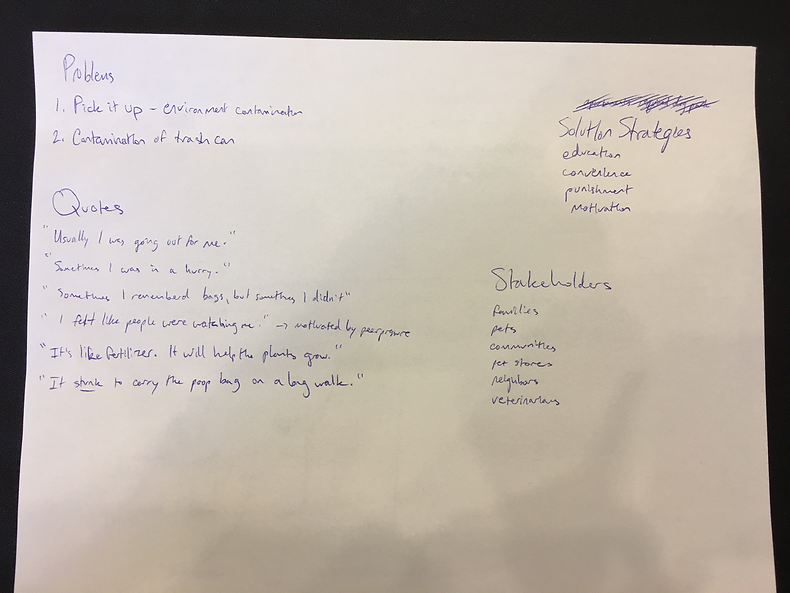 Problems
1. Pick it up - environment contamination
2. Contamination of trash can
Quotes
"Usually I was going out for me."
"Sometimes I was in a hurry."
"Sometimes I rememberd bags, but somethes I didn't"
"I felt like people were watching me." → motivated by peerpresure
"It's like fertilizer. It will help the plants grow."
"It stunk to carry the poop bag on a long walk."
Solution Strategies
education
convenience
punishment
motivation
Stakeholders
families
pets
communities
pet stores
neighbors
veterinarians